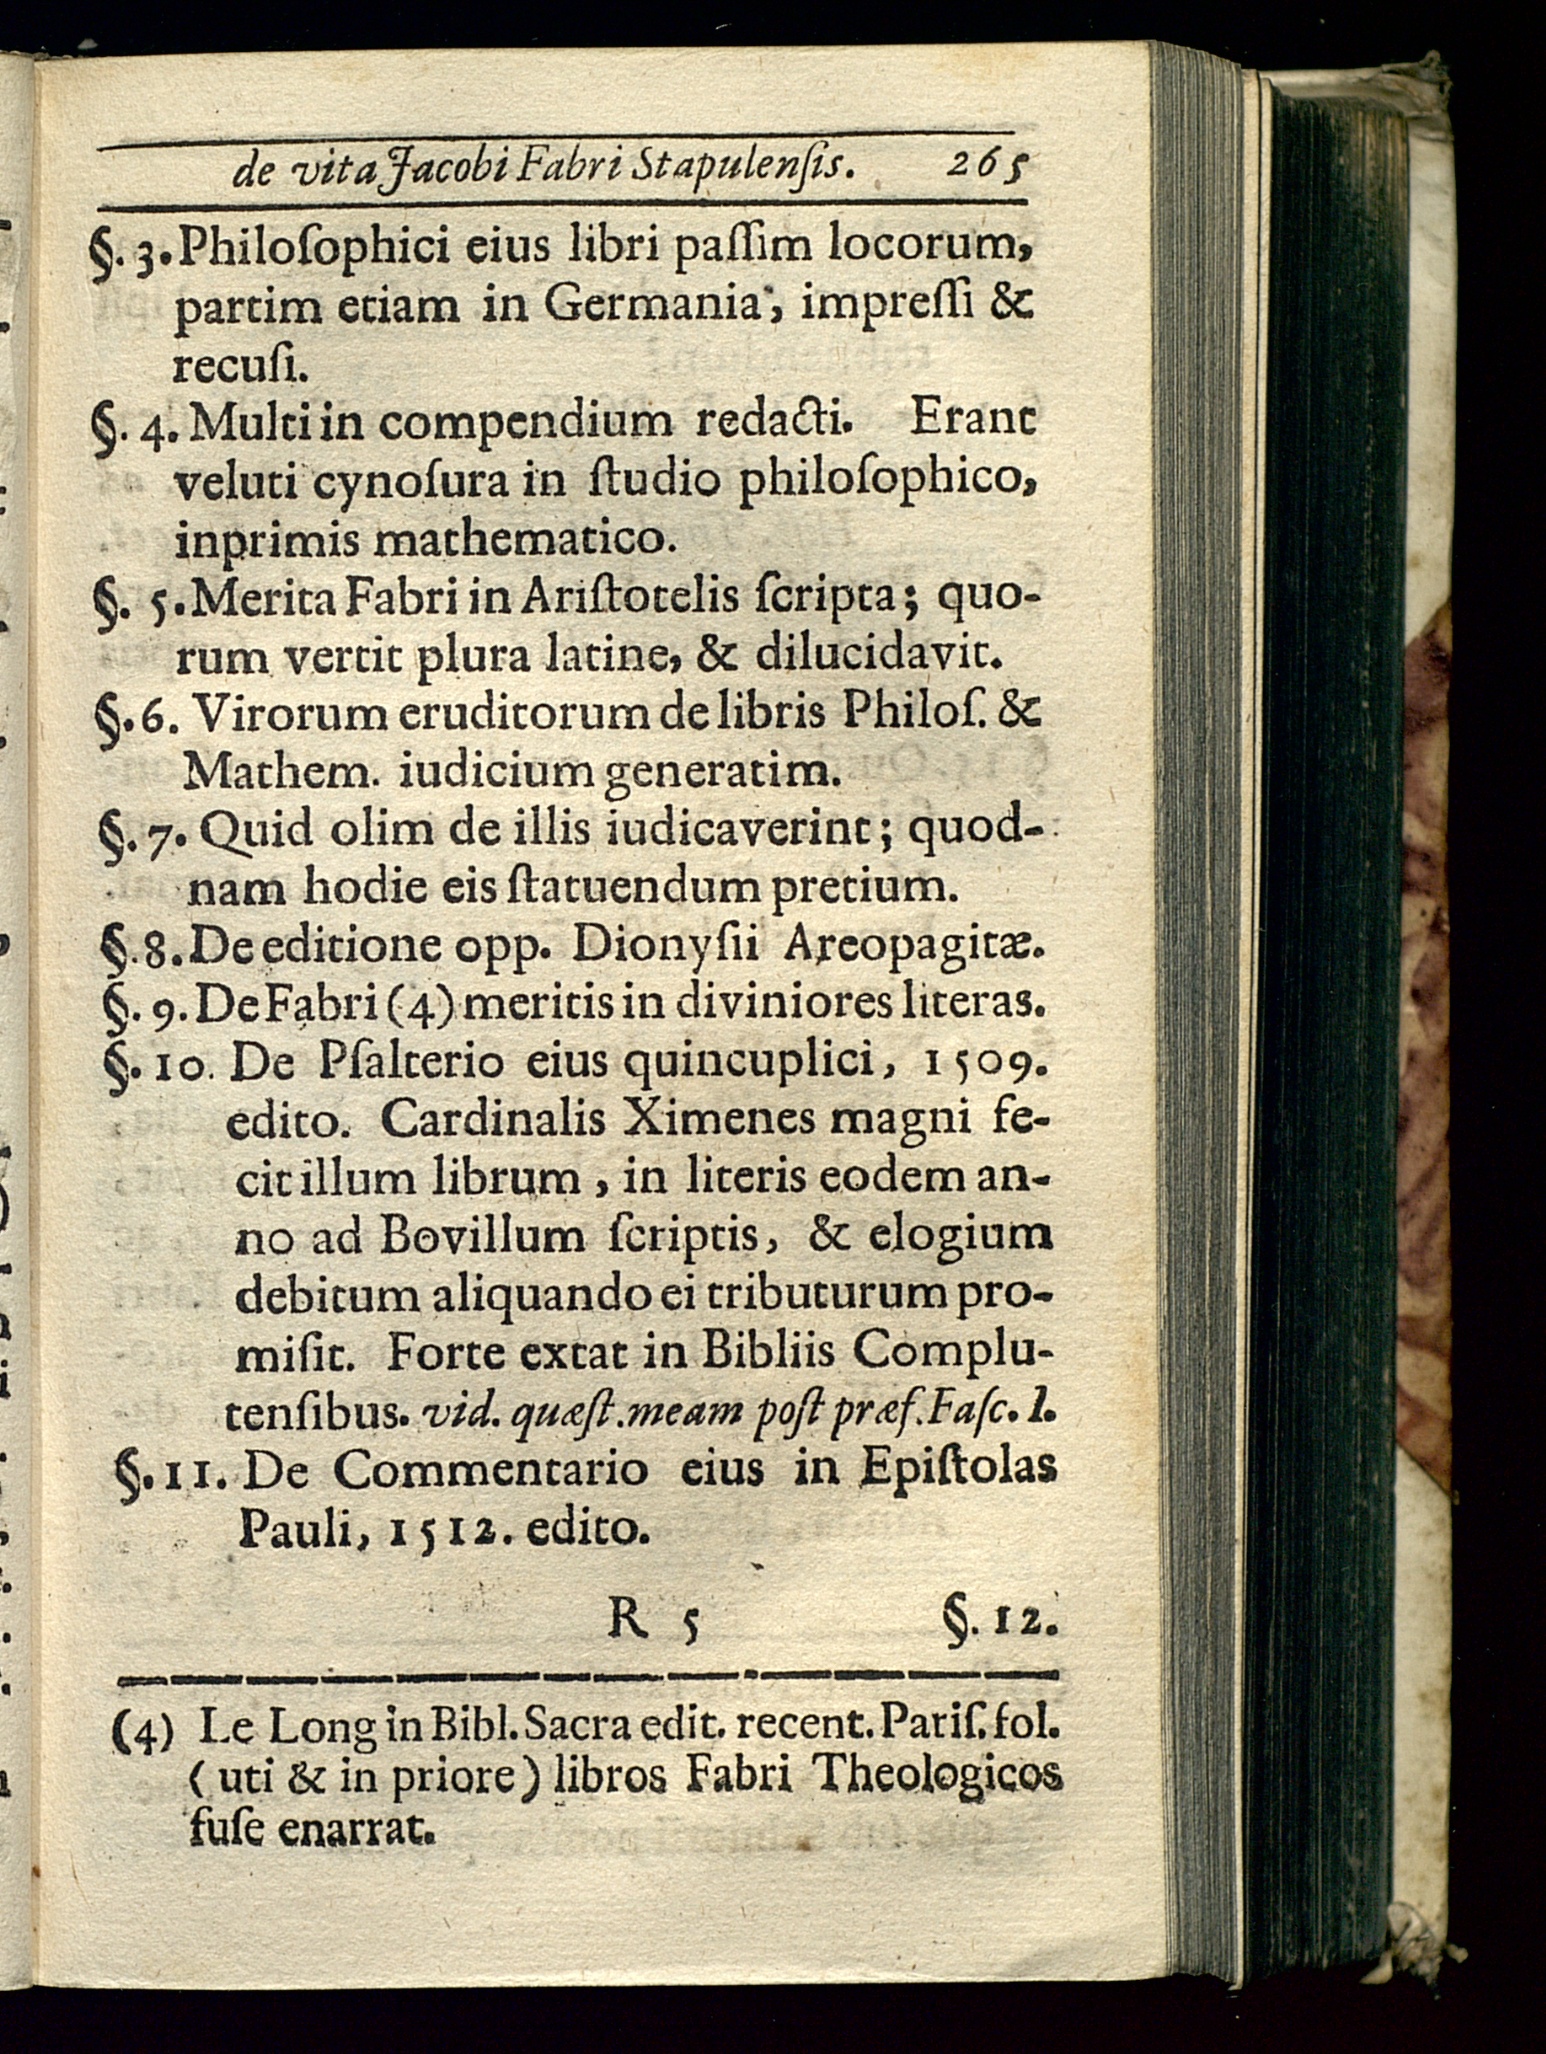 de vita Jacobi Fabri Stapulenſis. 265
§. 3. Philoſophici eius libri paſſim locorum,
partim etiam in Germania, impreſſi &
recuſi.
§. 4. Multi in compendium redacti. Erant
veluti cynoſura in ſtudio philoſophico,
inprimis mathematico.
§. 5. Merita Fabri in Ariſtotelis ſcripta; quo-
rum vertit plura latine, & dilucidavit.
§. 6. Virorum eruditorum de libris Philoſ. &
Mathem. iudicium generatim.
§. 7. Quid olim de illis iudicaverint; quod-
nam hodie eis ſtatuendum pretium.
§. 8. De editione opp. Dionyſii Areopagitæ.
§. 9. De Fabri (4) meritis in diviniores literas.
§. 10. De Pſalterio eius quincuplici, 1509.
edito. Cardinalis Ximenes magni fe-
cit illum librum, in literis eodem an-
no ad Bovillum ſcriptis, & elogium
debitum aliquando ei tributurum pro-
miſit. Forte extat in Bibliis Complu-
tenſibus. vid. quæſt. meam poſt præf. Faſc. I.
§. 11. De Commentario eius in Epiſtolas
Pauli, 1512. edito.
R 5 §. 12.
(4) Le Long in Bibl. Sacra edit. recent. Pariſ. fol.
(uti & in priore) libros Fabri Theologicos
fuſe enarrat.